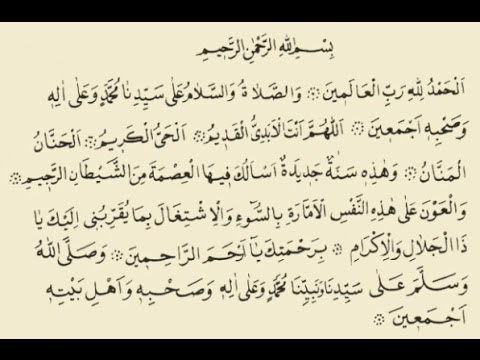 بِسْمِ اللهِ الرَّحْمٰنِ الرَّحِيمِ
اَلْحَمْدُ لِلّٰهِ رَبِّ الْعَالَمِينَ ۞ وَالصَّلَاةُ وَالسَّلَامُ عَلٰى سَيِّدِنَا مُحَمَّدٍ وَعَلٰى اٰلِهِ
وَصَحْبِهِ اَجْمَعِينَ ۞ اَللّٰهُمَّ اَنْتَ الْاَبَدِىُّ الْقَدِيمُ ۞ اَلْحَىُّ الْكَرِيمُ ۞ اَلْحَنَّانُ
الْمَنَّانُ ۞ وَهٰذِهِ سَنَةٌ جَدِيدَةٌ اَسْاَلُكَ فِيهَا الْعِصْمَةَ مِنَ الشَّيْطَانِ الرَّجِيمِ ۞
وَالْعَوْنَ عَلٰى هٰذِهِ النَّفْسِ الْاَمَّارَةِ بِالسُّوءِ وَالْاِشْتِغَالَ بِمَا يُقَرِّبُنِى اِلَيْكَ يَا ذَا
ذَا الْجَلَالِ وَالْاِكْرَامِ ۞ بِرَحْمَتِكَ يَا اَرْحَمَ الرَّاحِمِينَ ۞ وَصَلَّى اللهُ
وَسَلَّمَ عَلٰى سَيِّدِنَا وَنَبِيِّنَا مُحَمَّدٍ وَعَلٰى اٰلِهِ وَصَحْبِهِ وَاَهْلِ بَيْتِهِ
اَجْمَعِينَ ۞